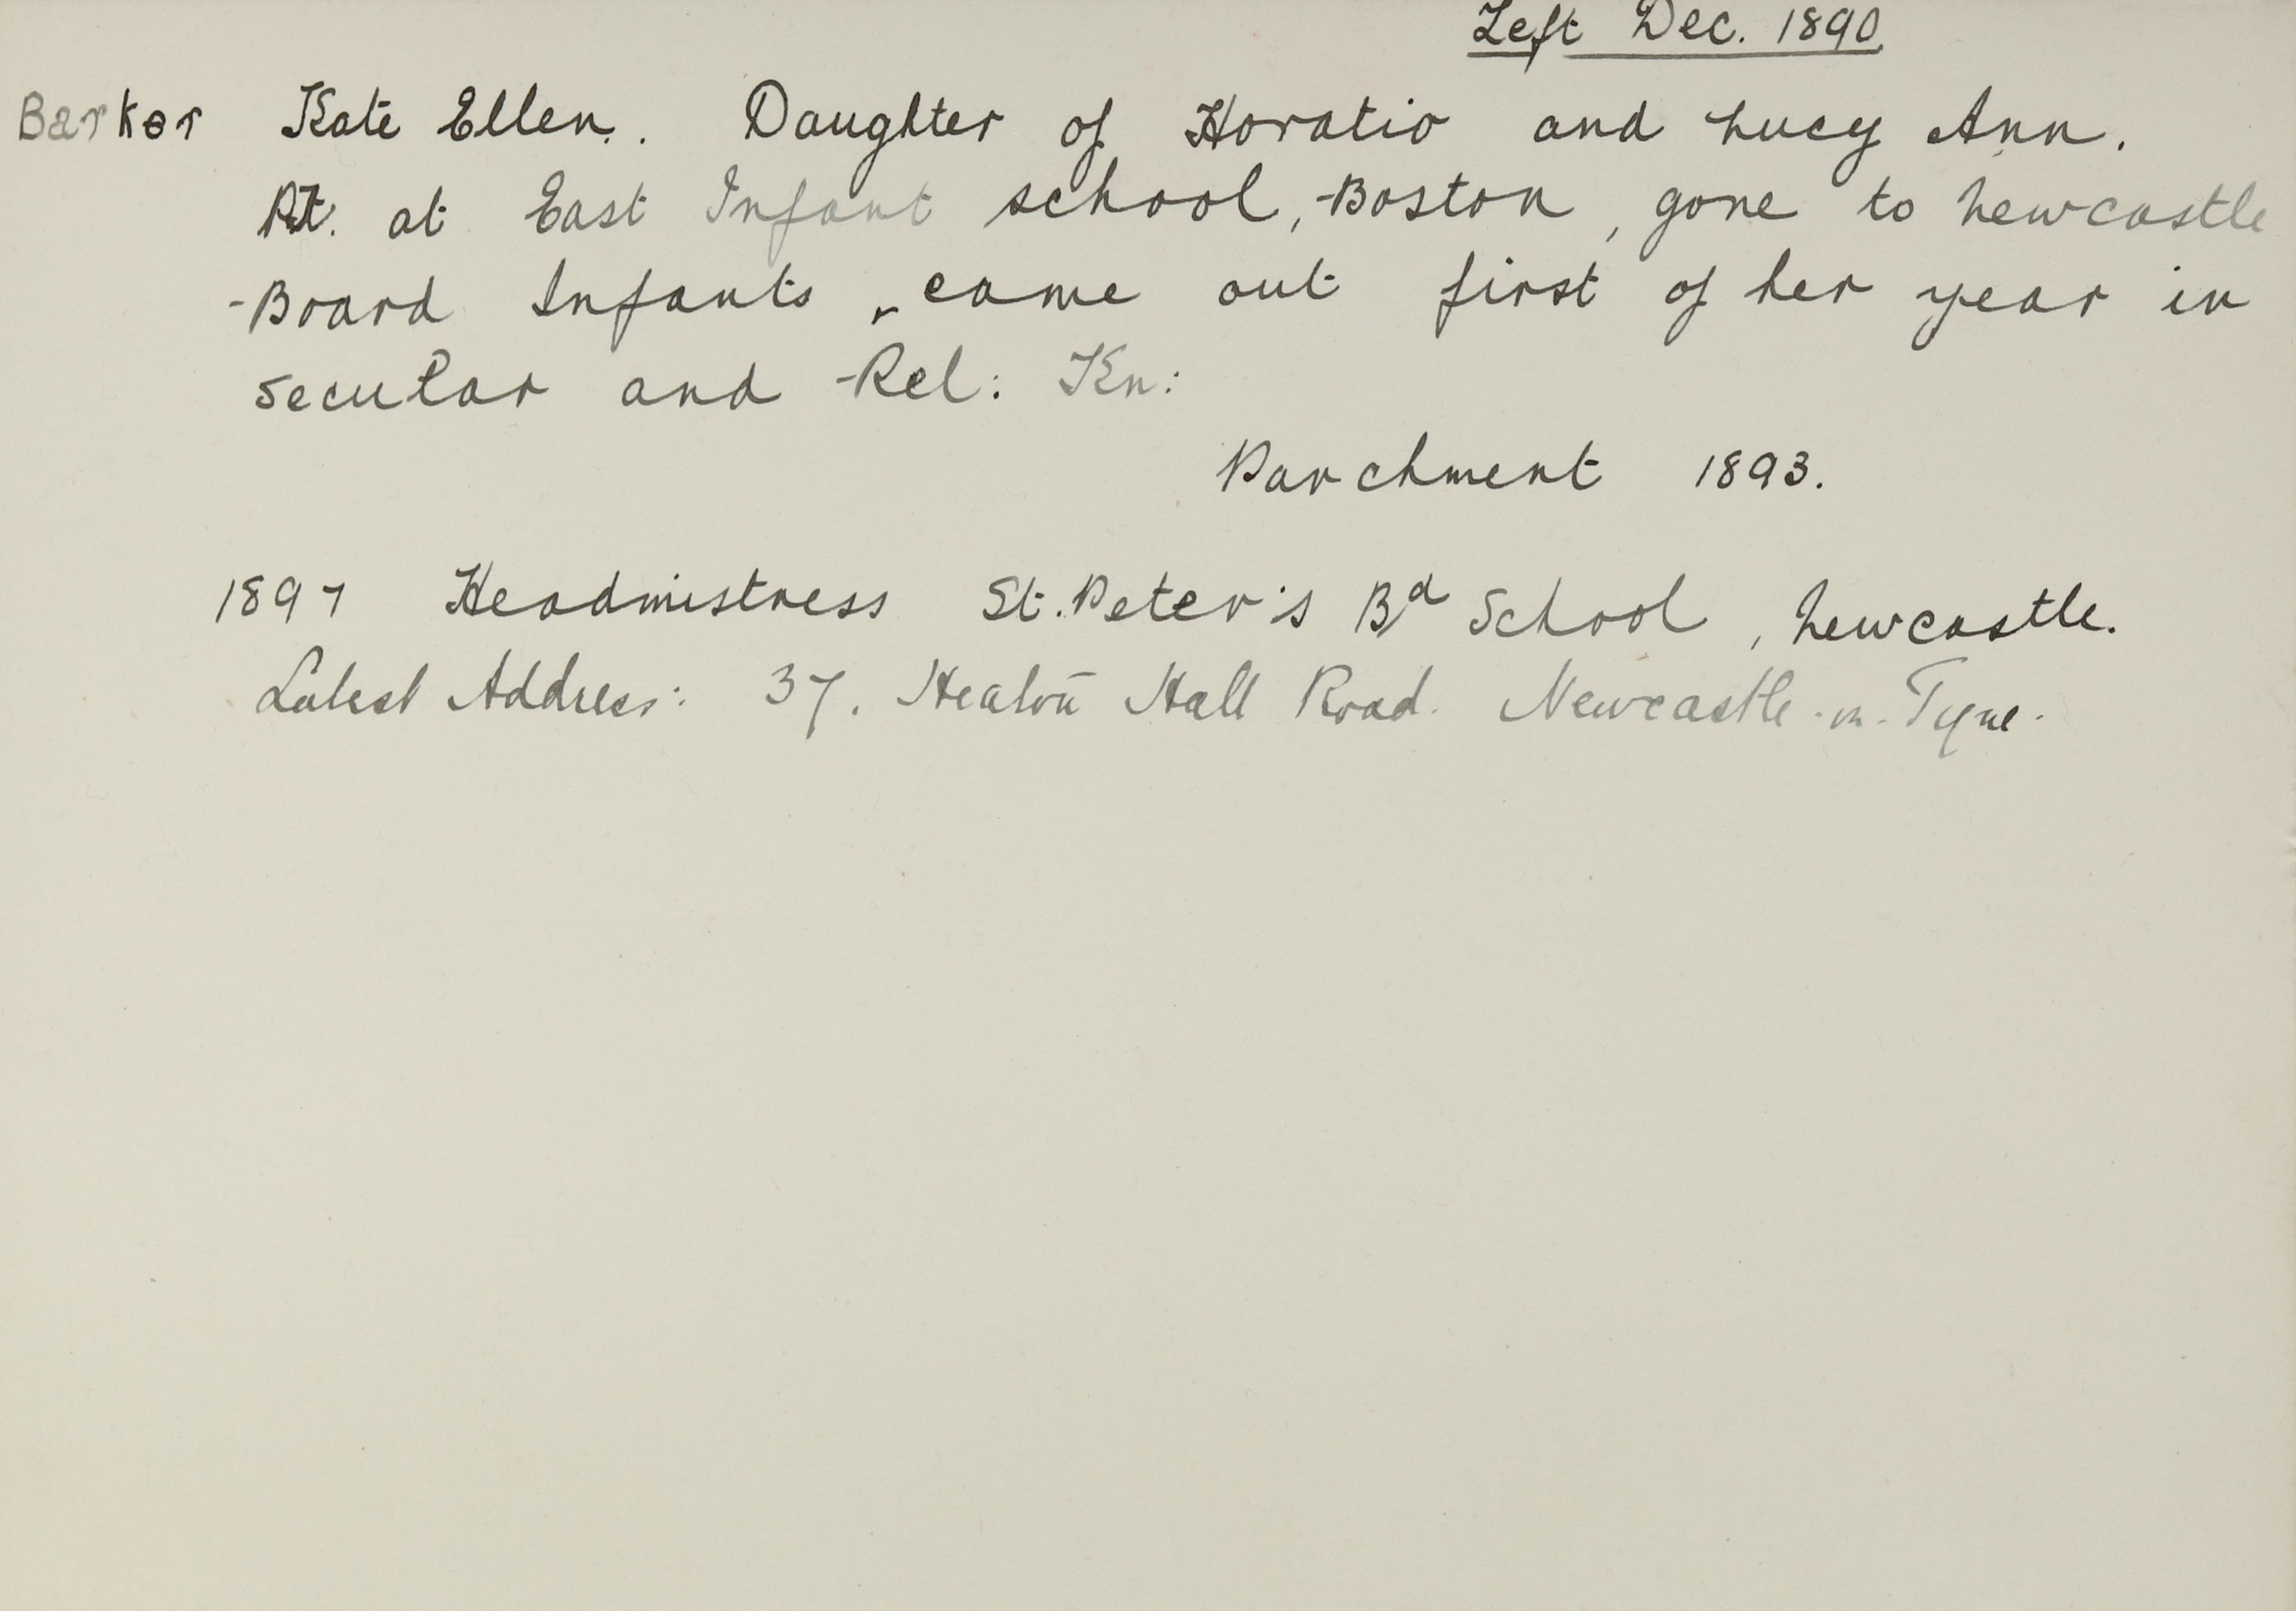 Left Dec. 1890
Barker Kate Ellen. Daughter of Horatio and Lucy Ann.
P.T. at East Infant school, Boston, gone to Newcastle
Board Infants, came out first of her year in
secular and Rel: Kn:
Parchment 1893.
1897 Headmistress St. Peter's Bd School, Newcastle.
Latest Address: 37. Heaton Hall Road. Newcastle-on-Tyne.